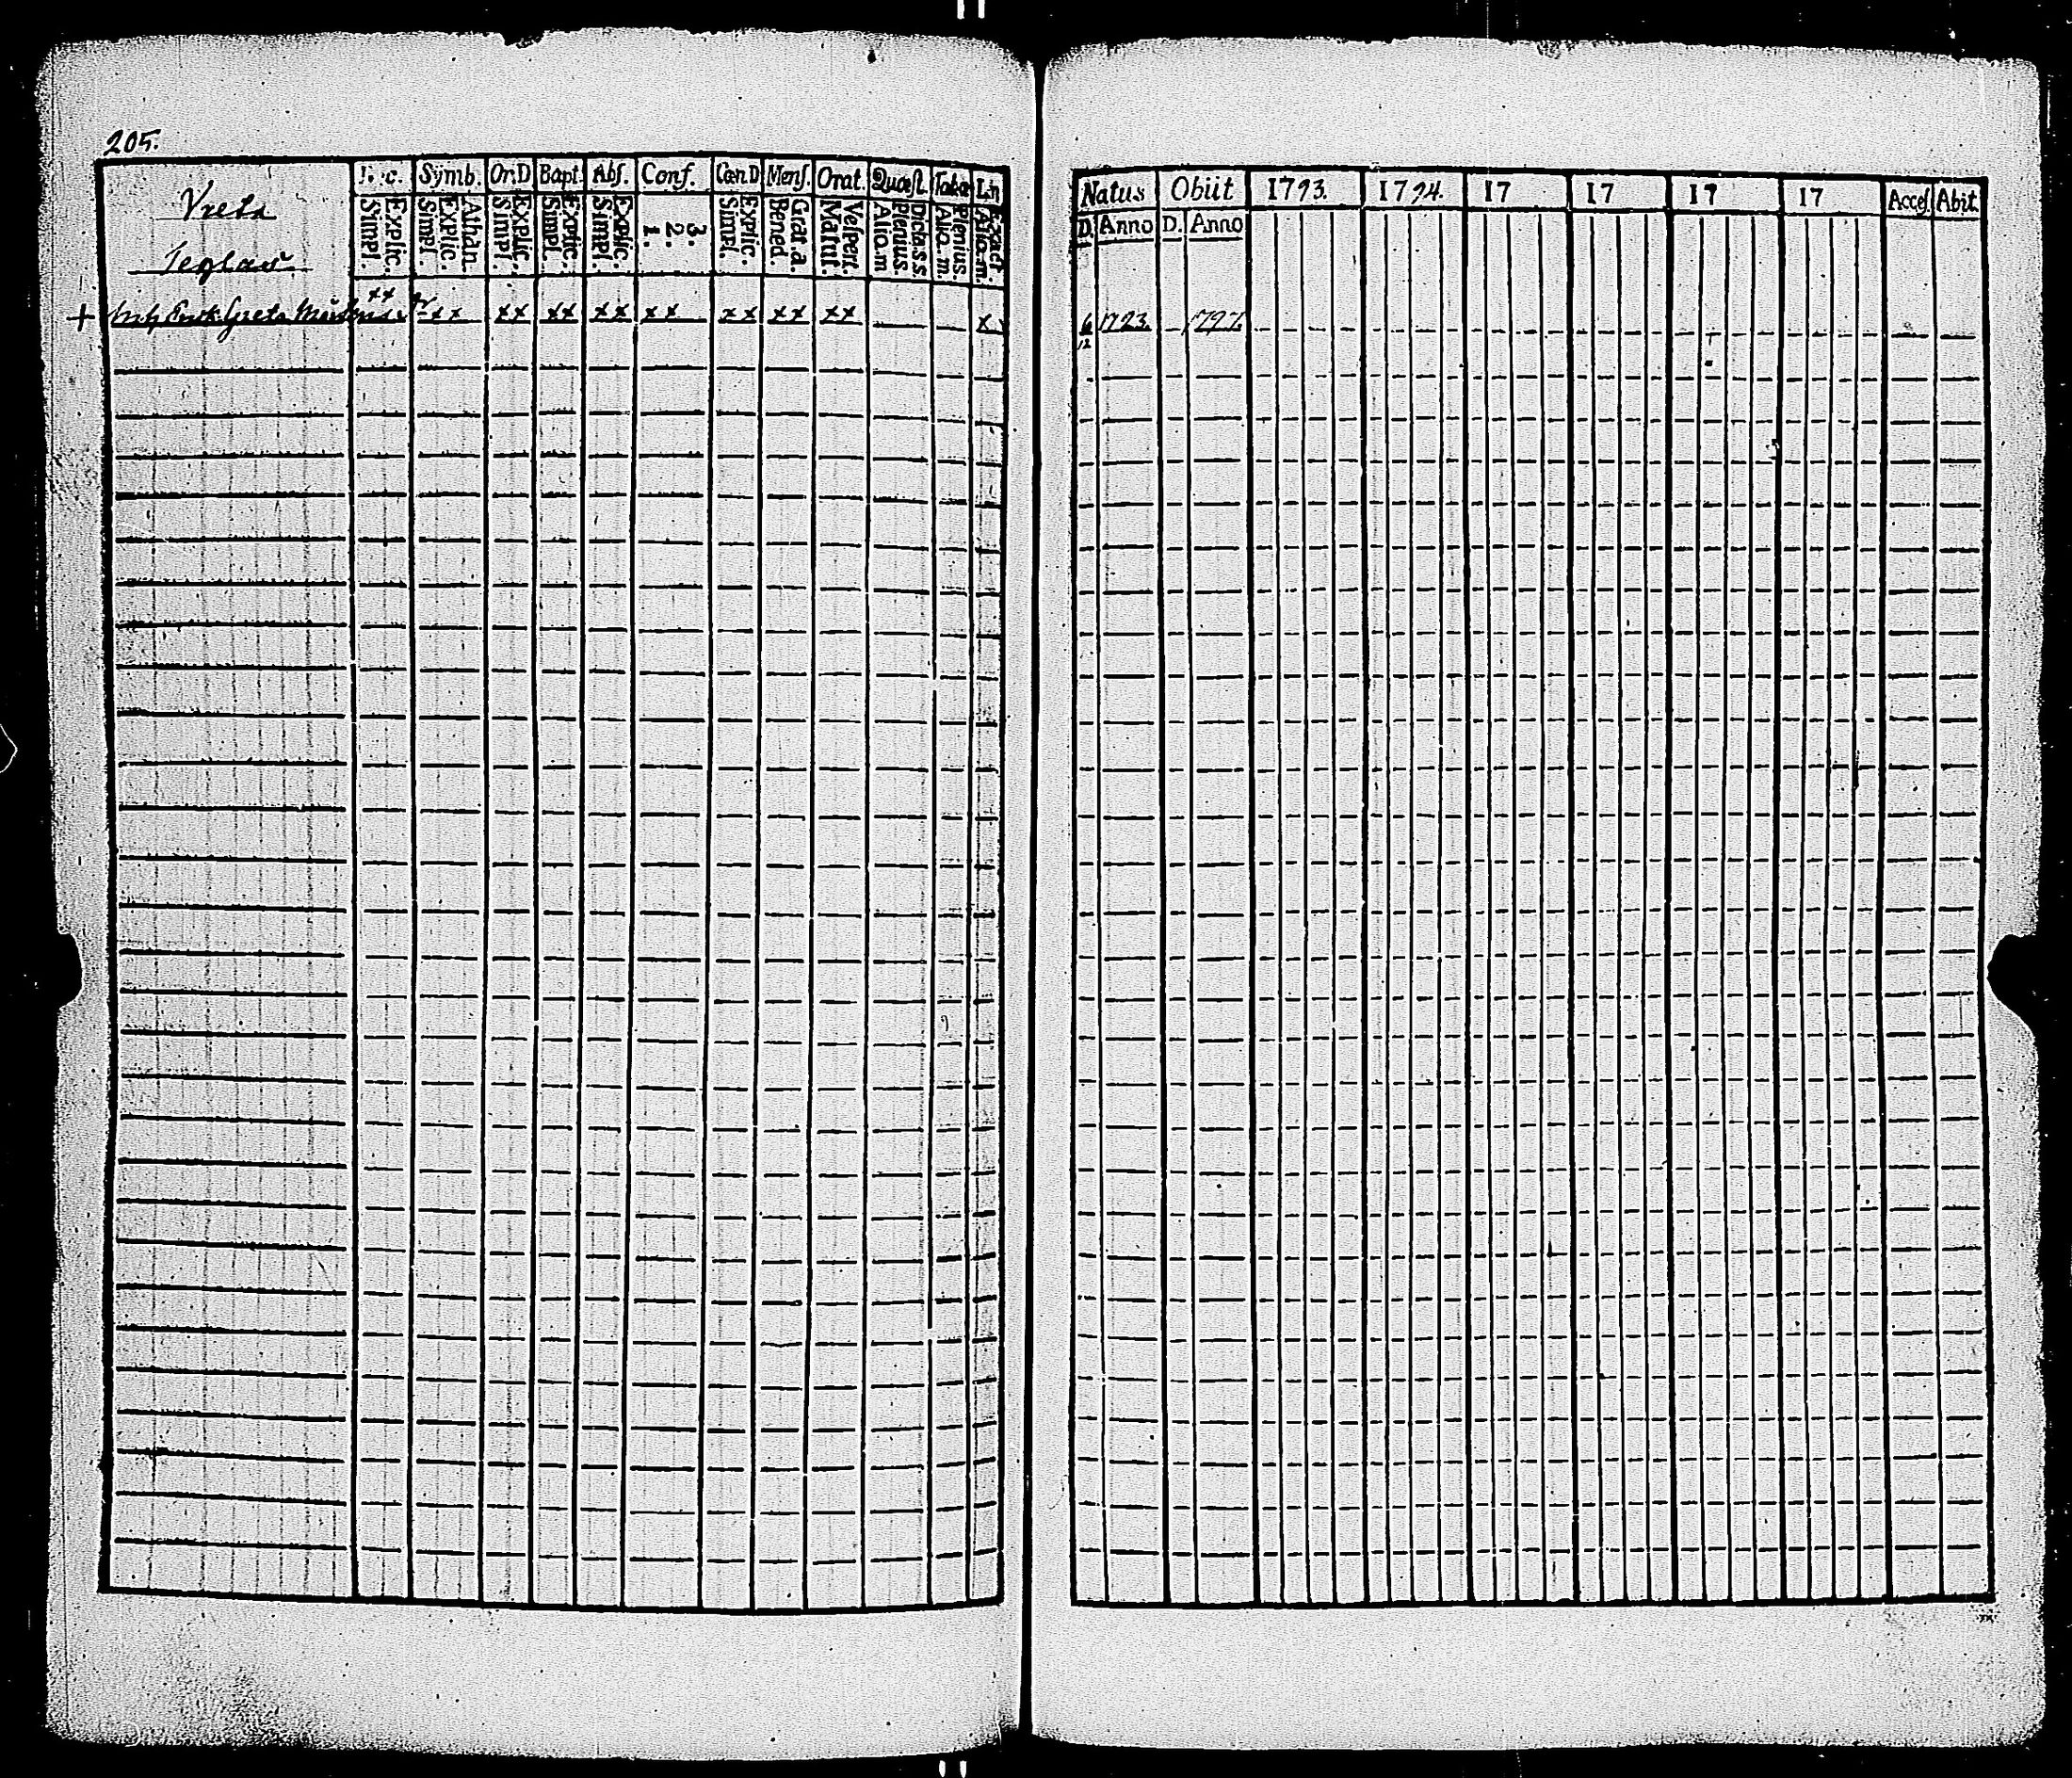 205.
Vreta
Teglaö
L. c. Symb. Or.D Bapt. Abs. Conf. Cœn.D Mens. Orat. Quæst. Taba Ln
Explic. Simpl. Athan. Explic. Simpl. Explic. Simpl. Explic. Simpl. Explic. Simpl. 3. 2. 1. Explic. Simpl. Grat.a. Bened. Vespert. Matut. Dicta s.s. Plenius. Alio.m Plenius. Alio.m. Exact. Alio.m.
+ Enk. Greta xx xx xx xx xx xx xx xx xx x
Natus Obiit 1793. 1794. 17 17 17 17 Acces. Abit.
D. Anno D. Anno
6 1723. 1797.
12